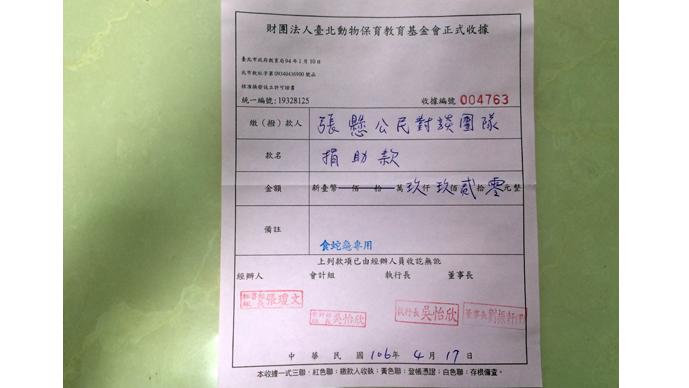 財團法人臺北動物保育教育基金會正式收據
臺北市政府教育局94年1月10日
北市教社字第09340436900號函
核准換發設立許可證書
統一編號:19328125
收據編號 004763
繳(撥)款人 張懸公民對談團隊
款名 捐助款
金額 新臺幣 佰 拾 萬玖仟玖佰貳拾零元整
備註
食蛇龜專用
上列款項已由經辦人員收訖無訛
經辦人 會計組 執行長 董事長
張瓊文
吳怡欣
執行長吳怡欣
董事長劉振軒
中華民國 106年 4月17日
本收據一式三聯，紅色聯：繳款人收執：黃色聯：登帳憑證：白色聯：存根備查。